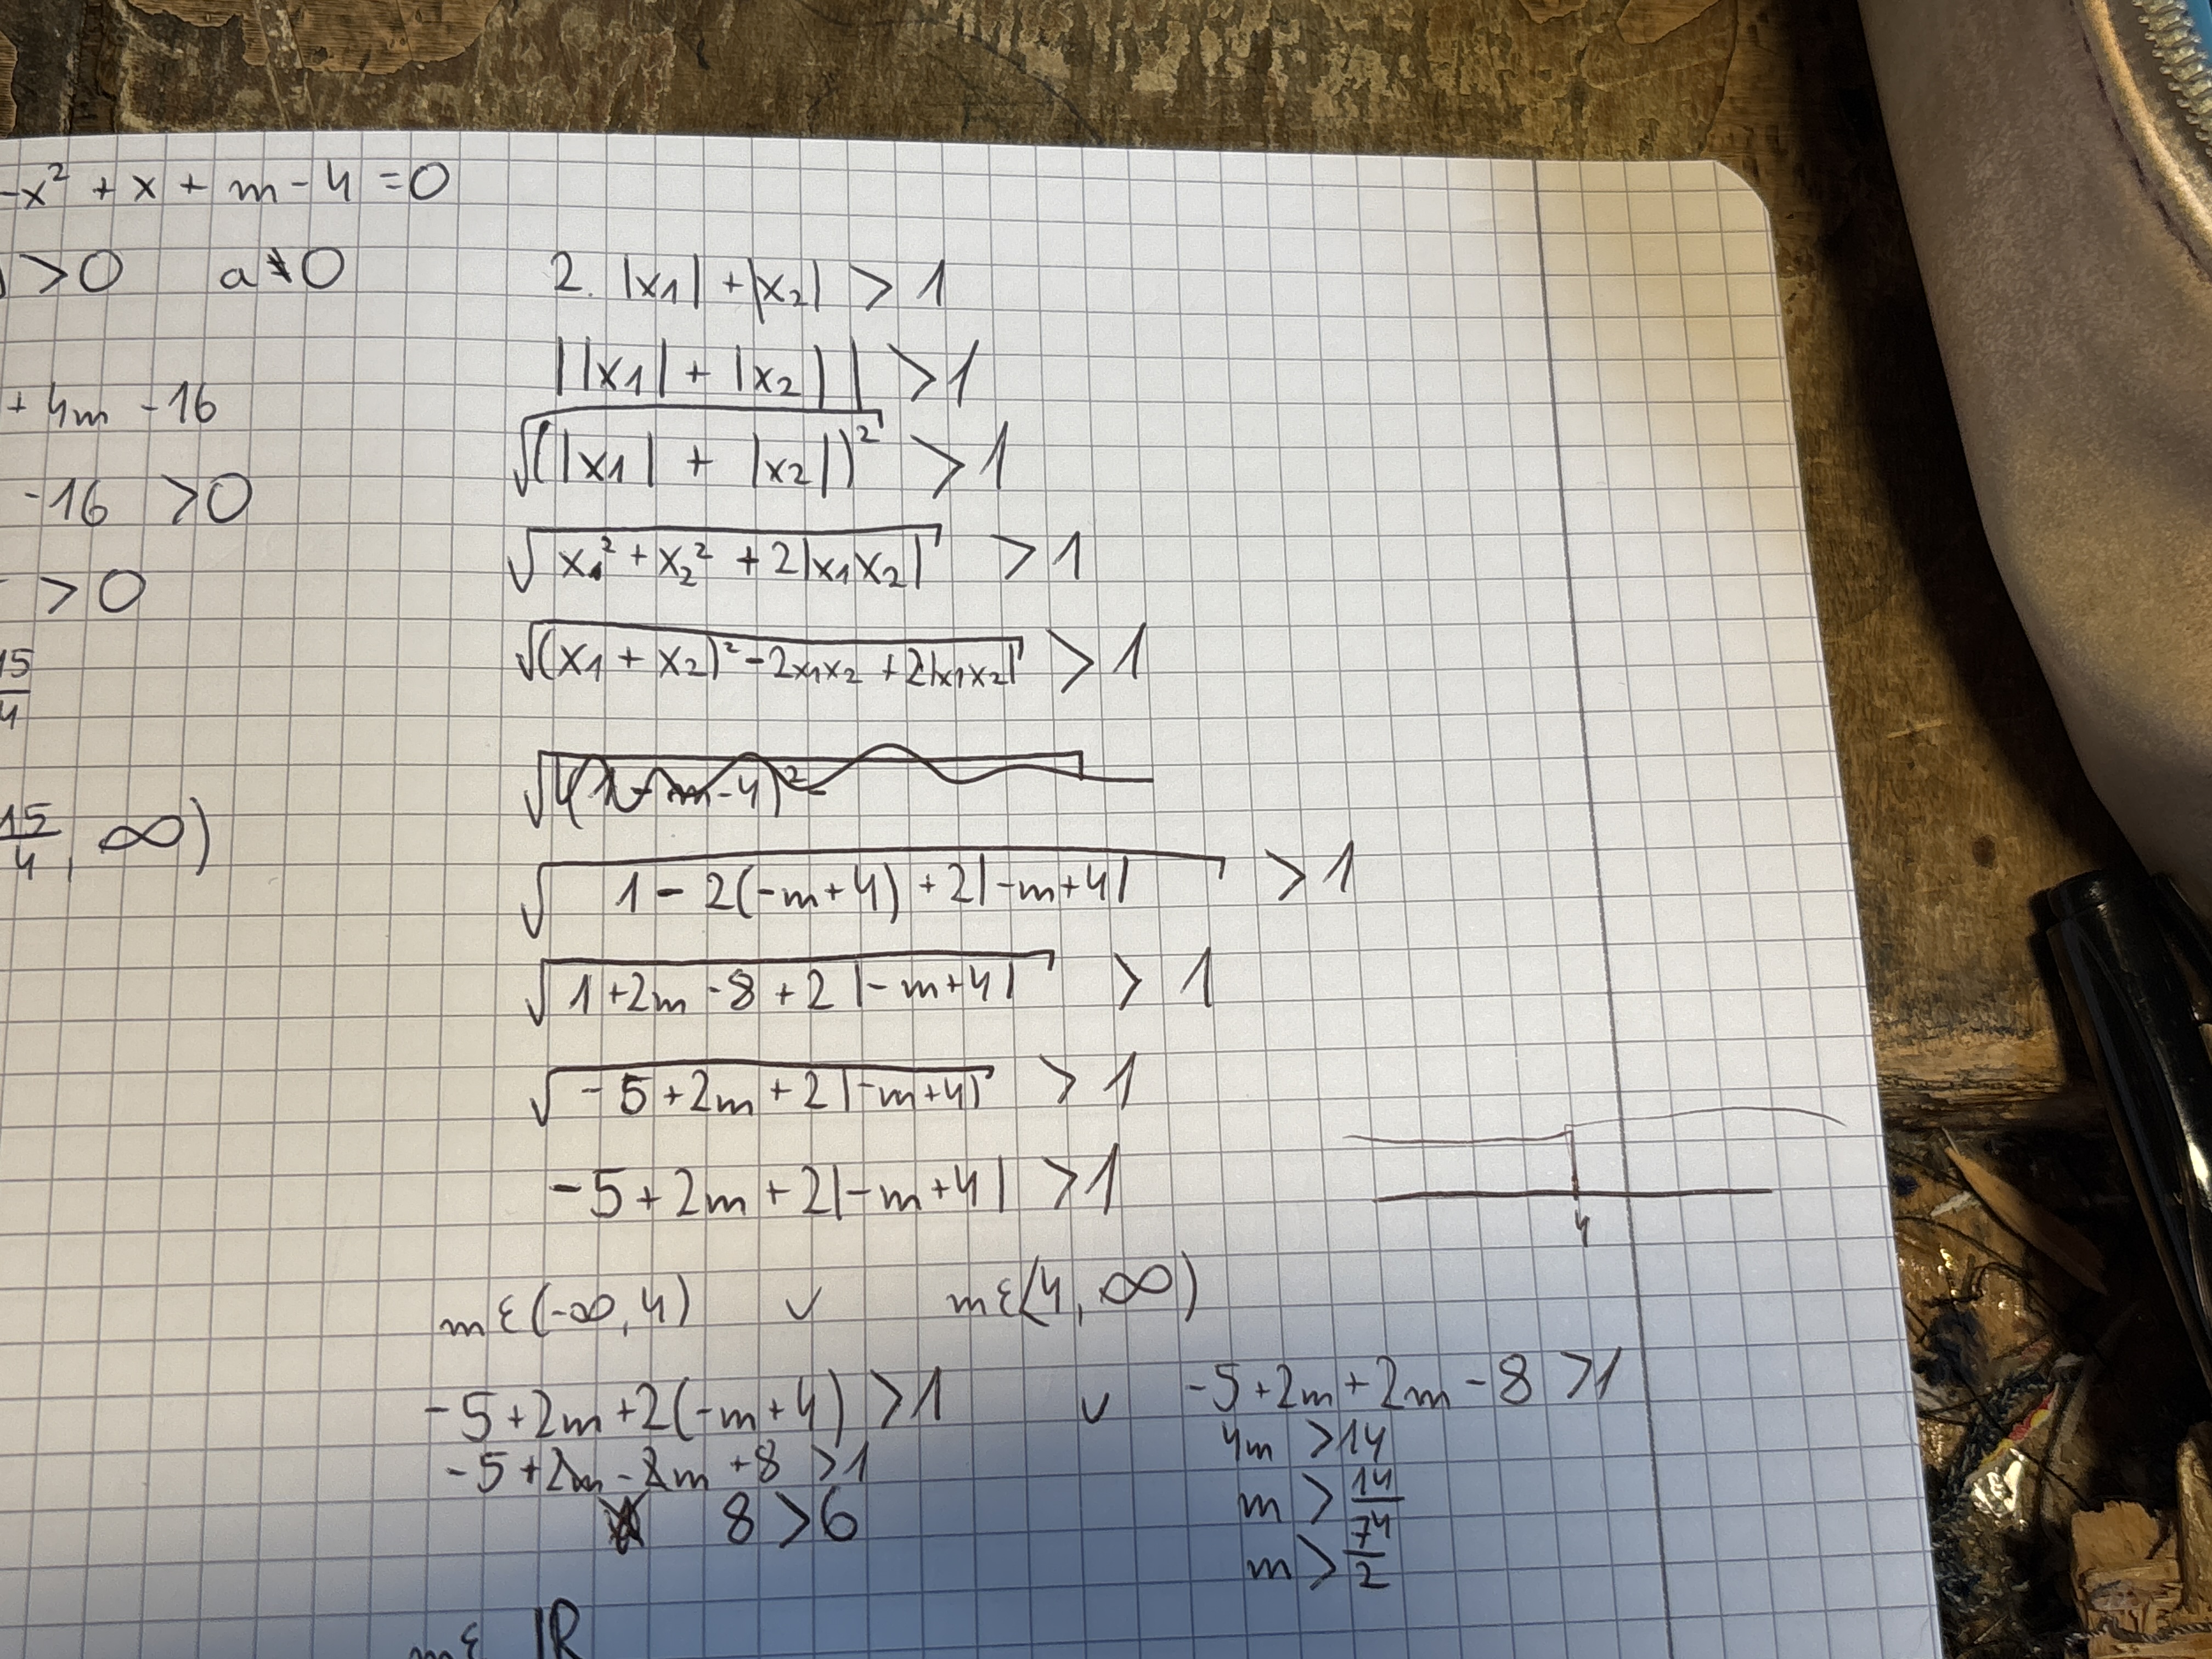 -x² + x + m - 4 = 0
> 0 a ≠ 0
+ 4m - 16
-16 > 0
> 0
15/4
15/4, ∞)
2. |x₁| + |x₂| > 1
||x₁| + |x₂|| > 1
√(|x₁| + |x₂|)² > 1
√x₁² + x₂² + 2|x₁x₂| > 1
√(x₁ + x₂)² - 2x₁x₂ + 2|x₁x₂| > 1
√1 - 2(-m+4) + 2|-m+4| > 1
√1 + 2m - 8 + 2|-m+4| > 1
√-5 + 2m + 2|-m+4| > 1
-5 + 2m + 2|-m+4| > 1
4
m ε (-∞, 4) v m ε (4, ∞)
-5 + 2m + 2(-m+4) > 1 v -5 + 2m + 2m - 8 > 1
4m > 14
-5 + 2m - 2m + 8 > 1
m > 14/4
8 > 6
m > 7/2
m ε ℝ